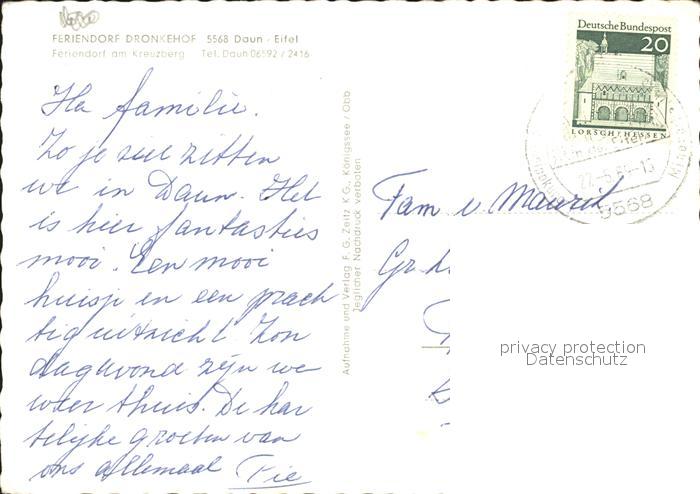 FERIENDORF DRONKEHOF 5568 Daun - Eifel
Feriendorf am Kreuzberg Tel. Daun 06592 / 2416
Ha familie.
Zo je ziet zitten
we in Daun. Het
is hier fantasties
mooi. Een mooi
huisje en een prach
tig uitzicht. Zon
dagavond zijn we
weer thuis. De har
telijke groeten van
ons allemaal Tie
Aufnahme und Verlag F. G. Zeitz K G., Königssee / Obb.
Jeglicher Nachdruck verboten
Deutsche Bundespost
20
LORSCH/HESSEN
5568
Fam v Maurik
privacy protection
Datenschutz